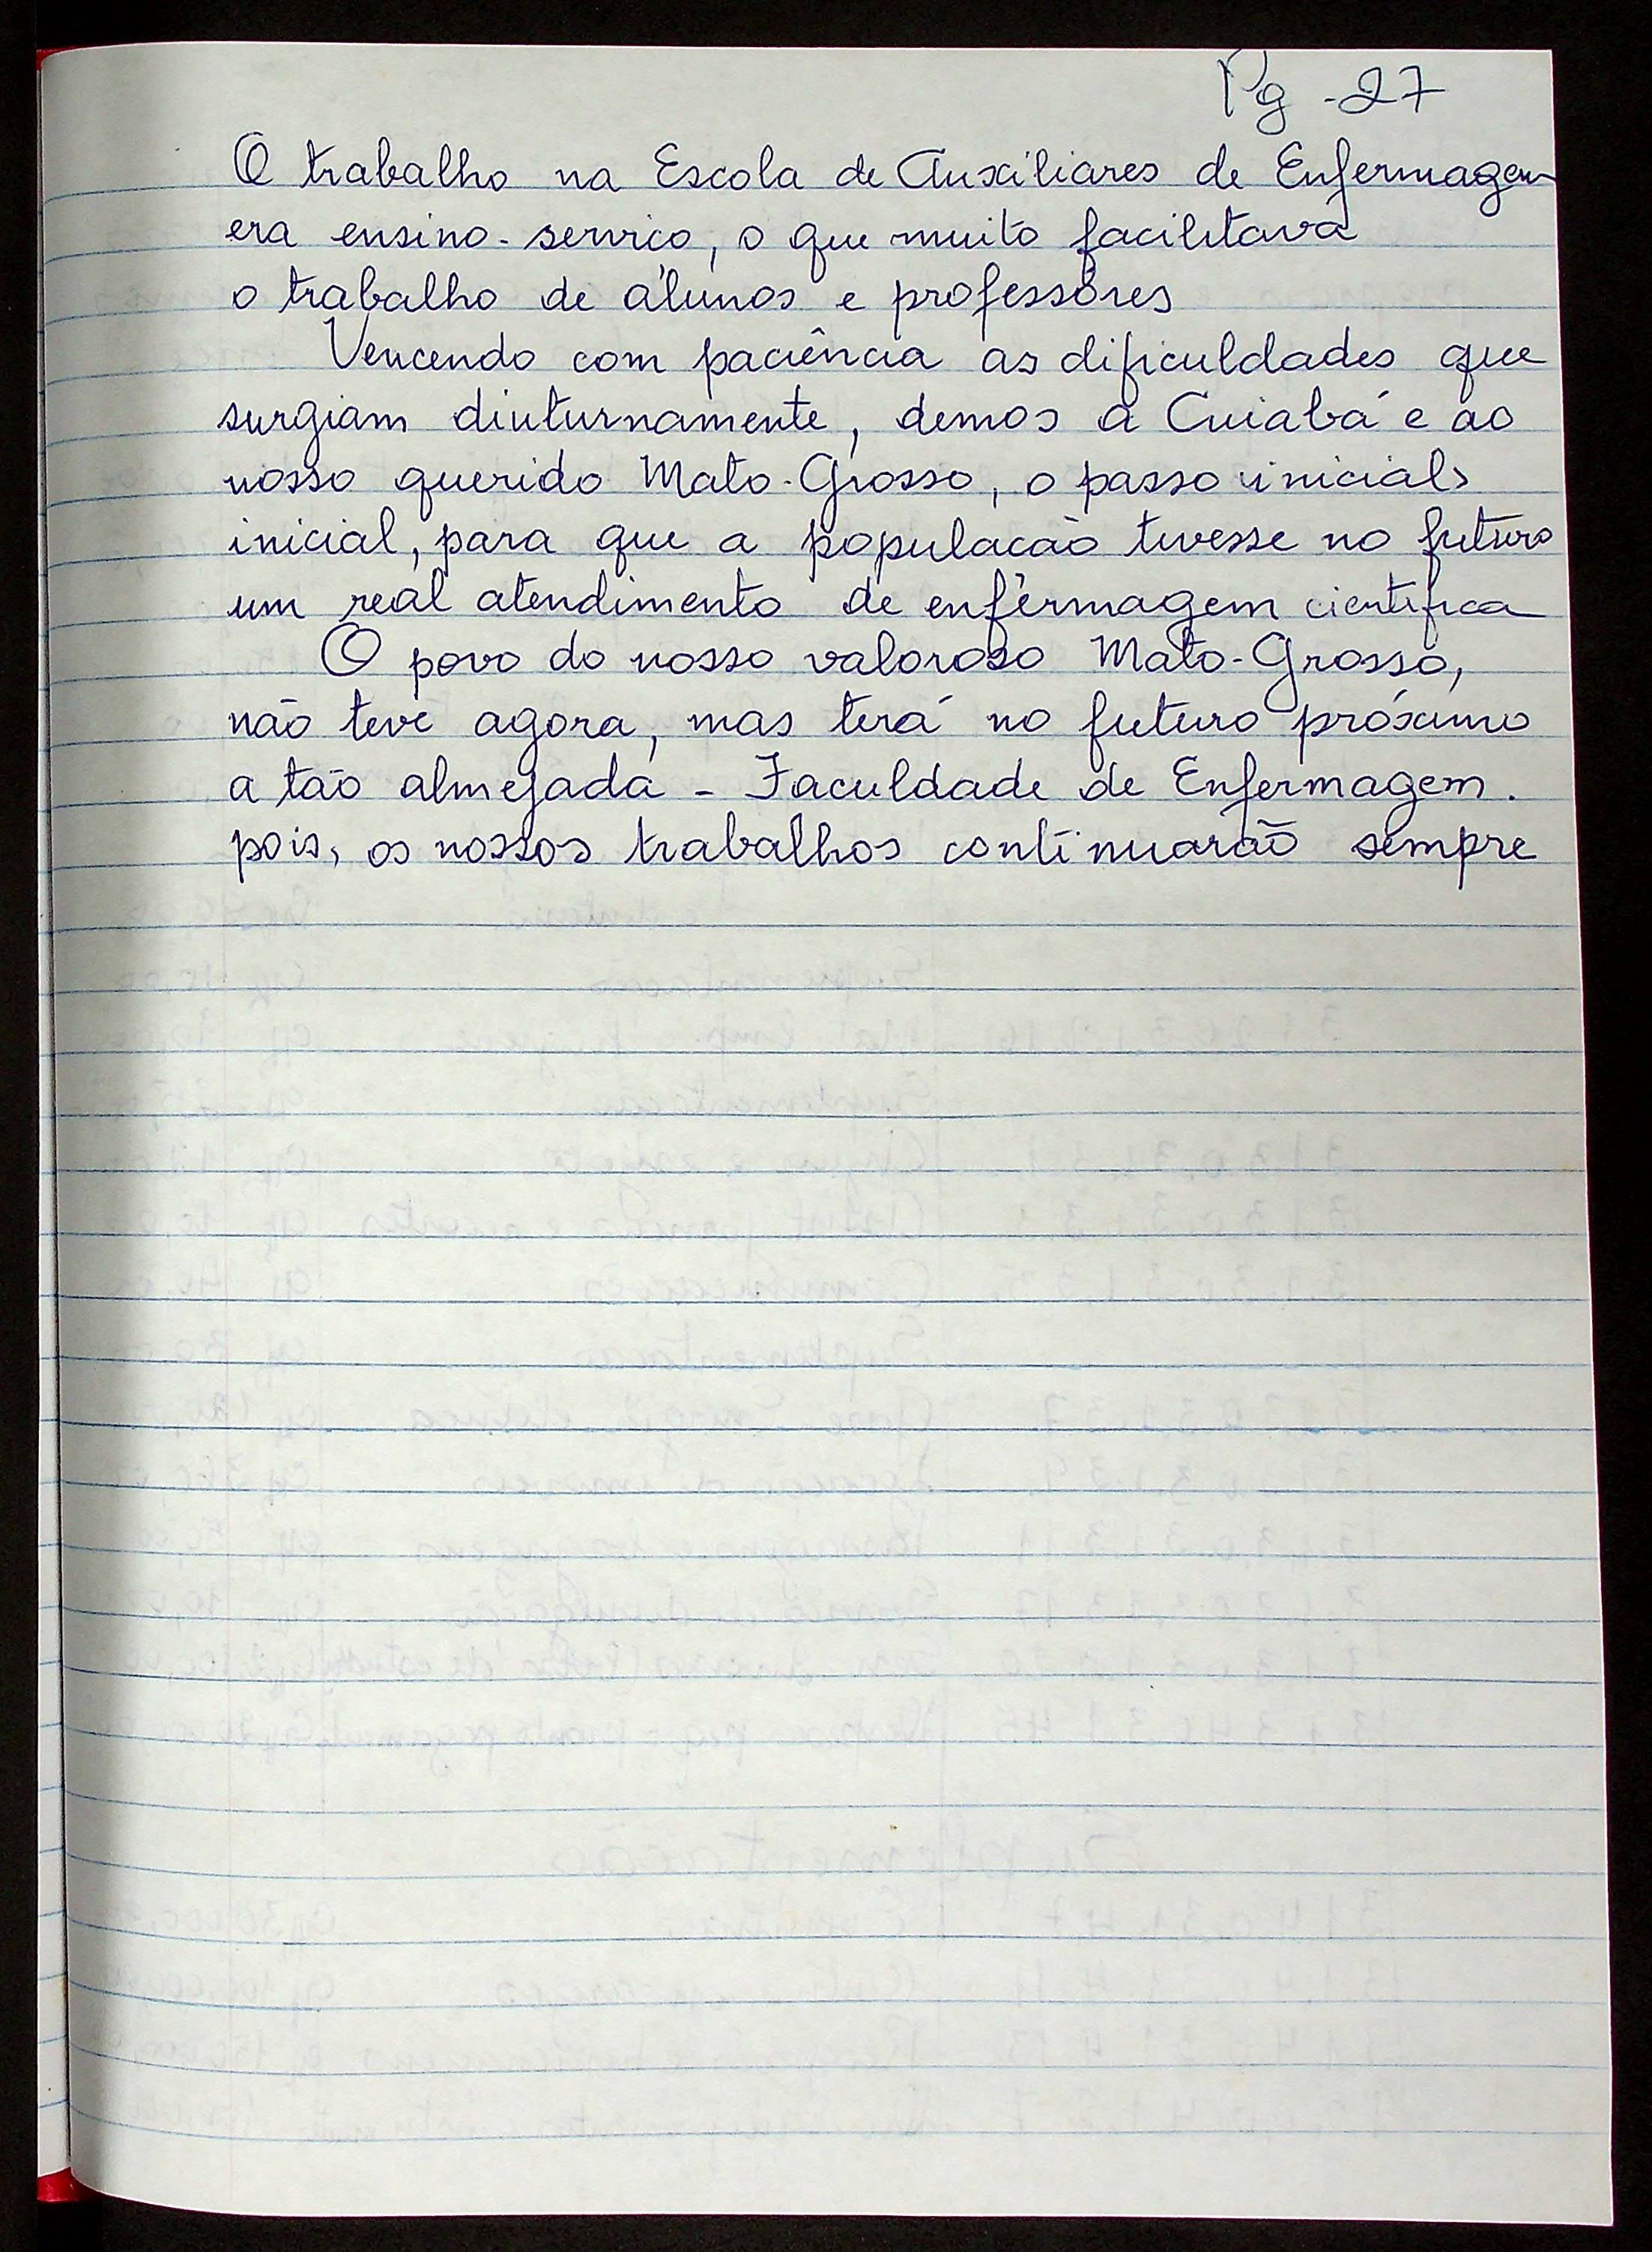 Pg - 27
O trabalho na Escola de Auxiliares de Enfermagem
era ensino-serviço, o que muito facilitava
o trabalho de alunos e professores
Vencendo com paciência as dificuldades que
surgiam diuturnamente, demos a Cuiabá e ao
nosso querido Mato-Grosso, o passo inicial
inicial, para que a populacão tivesse no futuro
um real atendimento de enfermagem cientifica
O povo do nosso valoroso Mato-Grosso,
não teve agora, mas terá no futuro próximo
a tão almejada - Faculdade de Enfermagem.
pois, os nossos trabalhos continuarão sempre